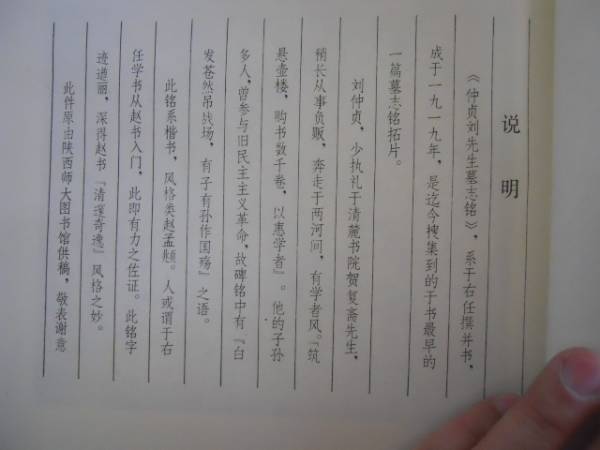 说明
《仲贞刘先生墓志铭》，系于右任撰并书，
成于一九一九年，是迄今搜集到的于书最早的
一篇墓志铭拓片。
刘仲贞，少执礼于清麓书院贺复斋先生，
稍长从事负贩，奔走于两河间，有学者风。“筑
悬壶楼，购书数千卷，以惠学者”。他的子孙
多人，曾参与旧民主主义革命，故碑铭中有“白
发苍然吊战场，有子有孙作国殇”之语。
此铭系楷书，风格类赵孟頫。人或谓于右
任学书从赵书入门，此即有力之佐证。此铭字
迹遒丽，深得赵书“清邃奇逸”风格之妙。
此件原由陕西师大图书馆供稿，敬表谢意